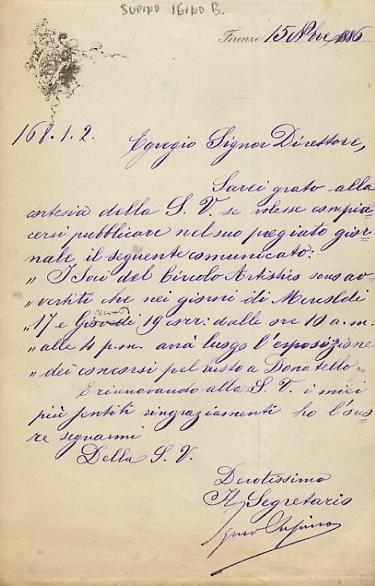 SUPINO IGINO B.
Firenze 15 Nbre 1886
168.1.2.
Egregio Signor Direttore,
Sarei grato alla
cortesia della S. V. se volesse compia-
cersi pubblicare nel suo pregiato gior-
nale, il seguente comunicato:
" I Soci del Circolo Artistico sono av
" vertiti che nei giorni di Mercoldì
" 17 e Giovedì Venerdì 19 corr: dalle ore 10 a.m.
" alle 4 p.m. avrà luogo l'esposizione
" dei concorsi pel busto a Donatello "
E rinnovando alla S. V. i miei
più sentiti ringraziamenti ho l'ono
re segnarmi
Della S. V.
Devotissimo
Il Segretario
Igino Supino